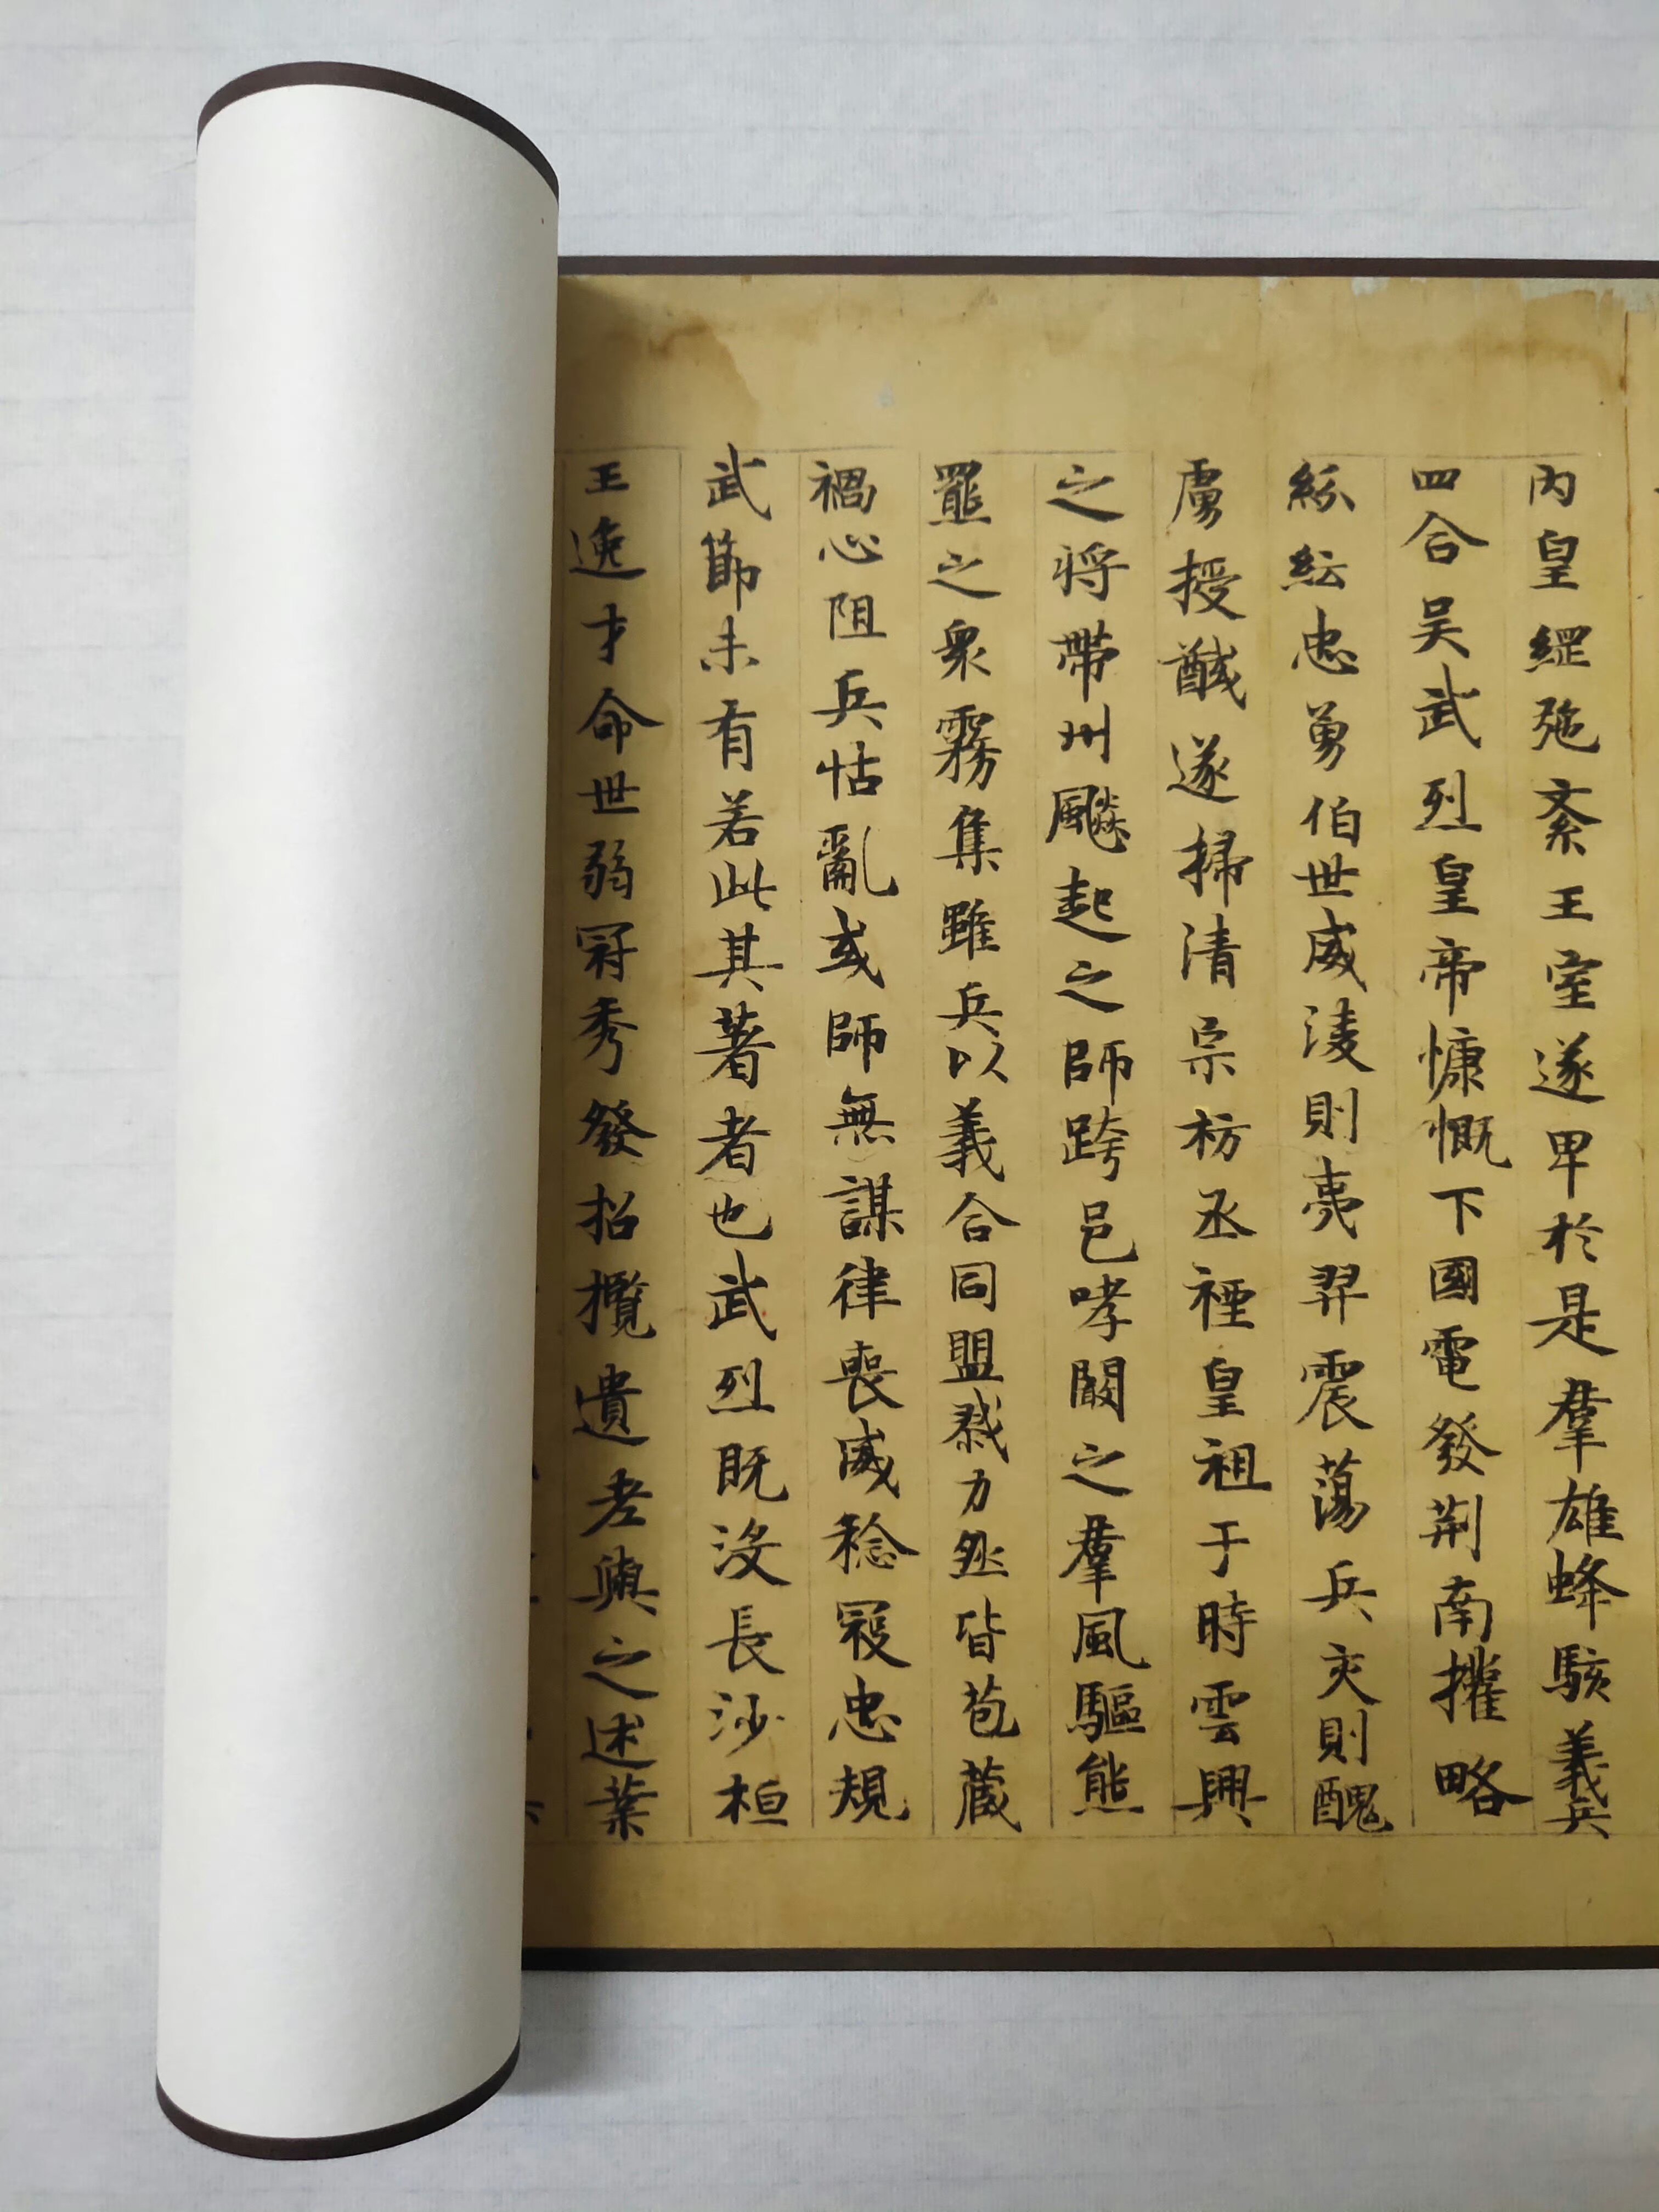 內皇綱弛紊王室遂卑於是羣雄蜂駭義兵
四合吴武烈皇帝慷慨下國電發荆南擢略
紛紜忠勇伯世威淩則夷羿震蕩兵交則醜
虜授馘遂掃清宗祊丞禋皇祖于時雲興
之將帶州飈起之師跨邑哮闞之羣風驅熊
羆之衆霧集雖兵以義合同盟戮力然皆苞藏
禍心阻兵怙亂或師無謀律喪威稔寇忠規
武節未有若此其著者也武烈既沒長沙桓
王逸才命世弱冠秀發招攬遺老與之述業